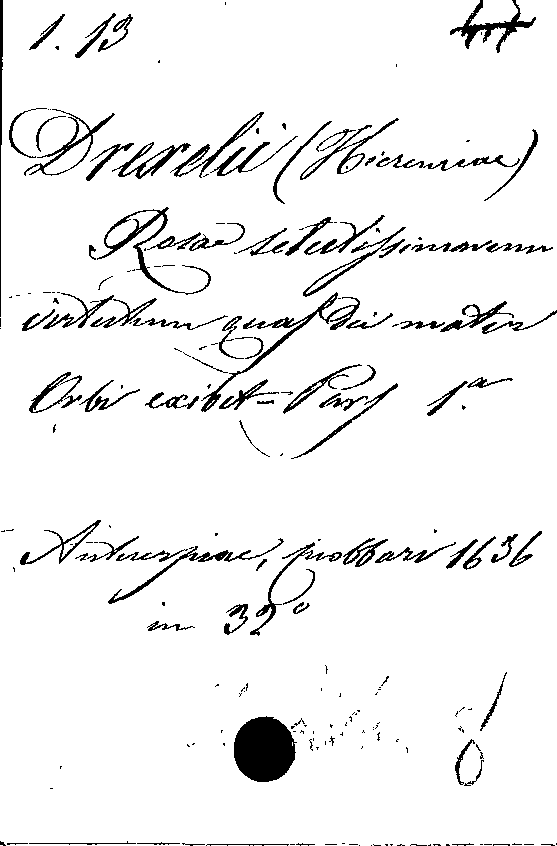 1. 13
Drexelii (Hieremiae)
Rosae selectissimarum
virtutum quas Dei mater
Orbi exibet = Pars 1.a
Antuerpiae, 1636
in 32°